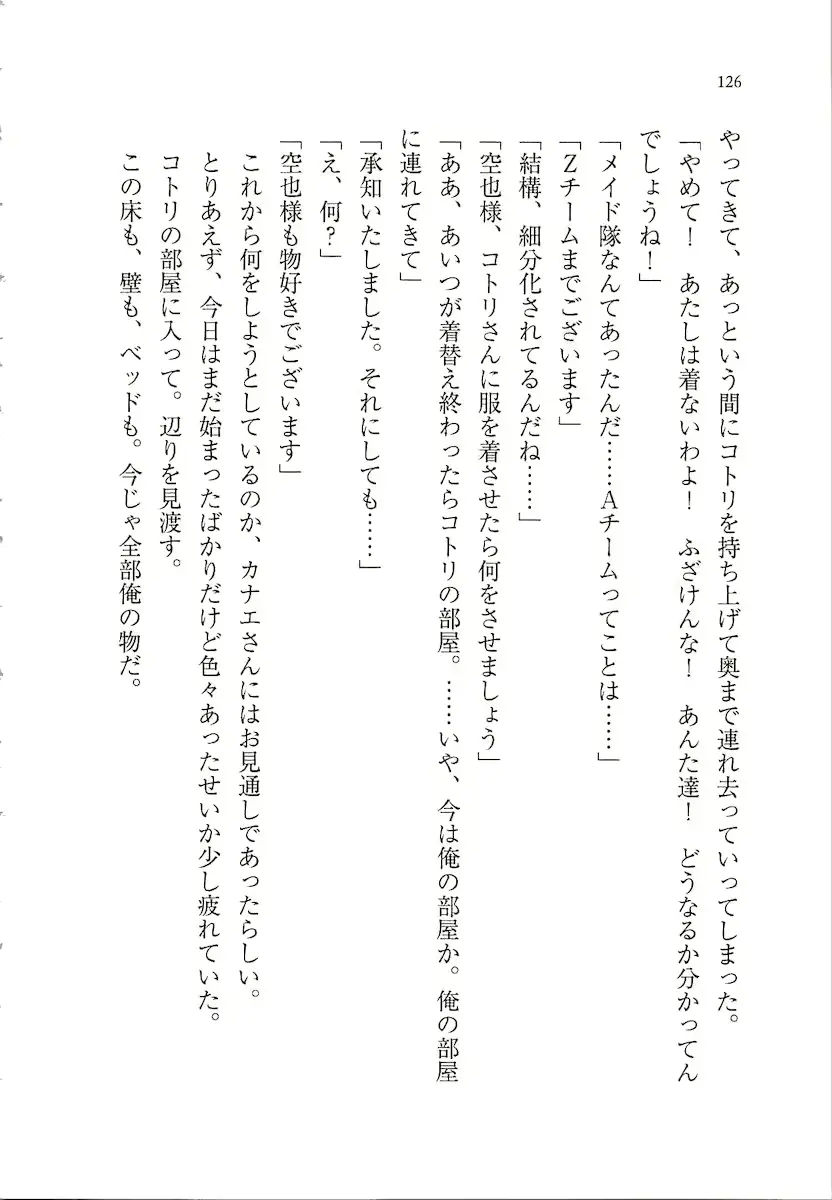 126
やってきて、あっという間にコトリを持ち上げて奥まで連れ去っていってしまった。
「やめて！　あたしは着ないわよ！　ふざけんな！　あんた達！　どうなるか分かってん
でしょうね！」
「メイド隊なんてあったんだ……Aチームってことは……」
「Zチームまでございます」
「結構、細分化されてるんだね……」
「空也様、コトリさんに服を着させたら何をさせましょう」
「ああ、あいつが着替え終わったらコトリの部屋。……いや、今は俺の部屋か。俺の部屋
に連れてきて」
「承知いたしました。それにしても……」
「え、何？」
「空也様も物好きでございます」
これから何をしようとしているのか、カナエさんにはお見通しであったらしい。
とりあえず、今日はまだ始まったばかりだけど色々あったせいか少し疲れていた。
コトリの部屋に入って。辺りを見渡す。
この床も、壁も、ベッドも。今じゃ全部俺の物だ。